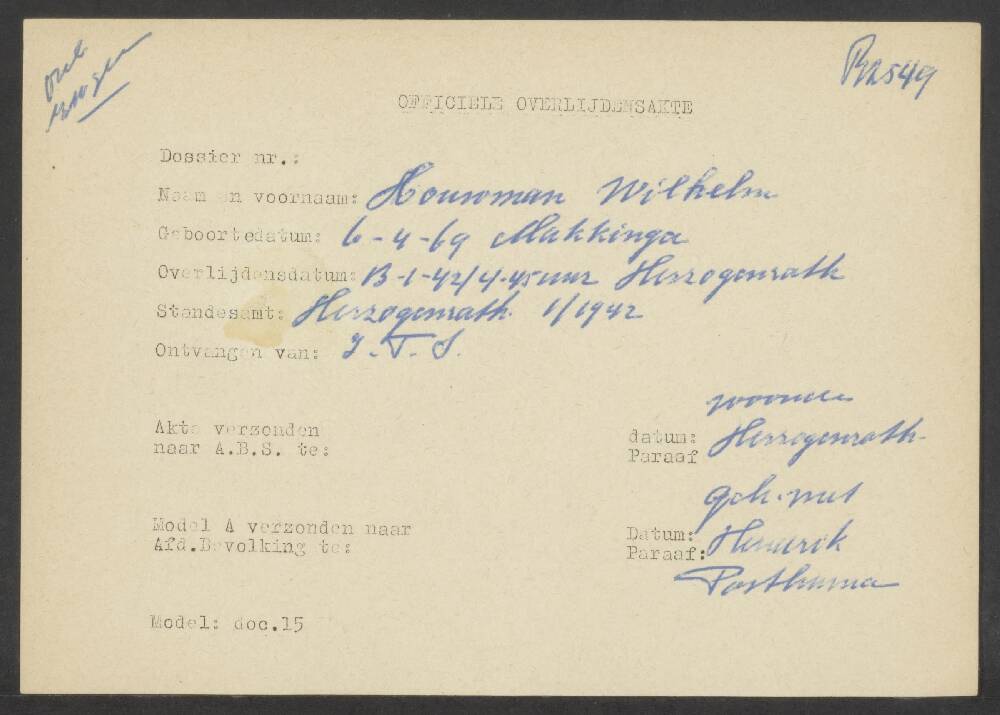 R2549
OFFICIELE OVERLIJDENSAKTE
Dossier nr.:
Naam en voornaam: Houwman Wilhelm
Geboortedatum: 6-4-69 Makkinga
Overlijdensdatum: 13-1-42/4.45 uur Herzogenrath
Standesamt: Herzogenrath 1/1942
Ontvangen van: I.T.S.
Akte verzonden
naar A.B.S. te:
datum:
Paraaf
Herzogenrath.
geh. met
Model A verzonden naar
Afd.Bevolking te:
Datum:
Paraaf:
Posthuma
Model: doc.15